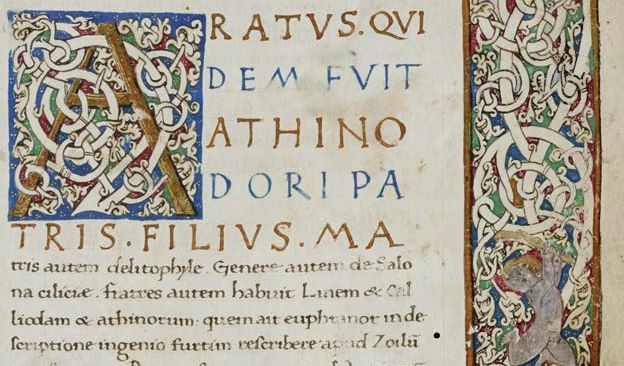 ARATVS. QVI
DEM FVIT
ATHINO
DORI PA
TRIS. FILIVS. MA
tris autem delitophyle. Genere autem de Salo
na ciliciæ. fratres autem habuit Linem & Cal
liodam & athinorum. quem ait euphranor in de
scriptione ingenio furtim rescribere apud Zoilū